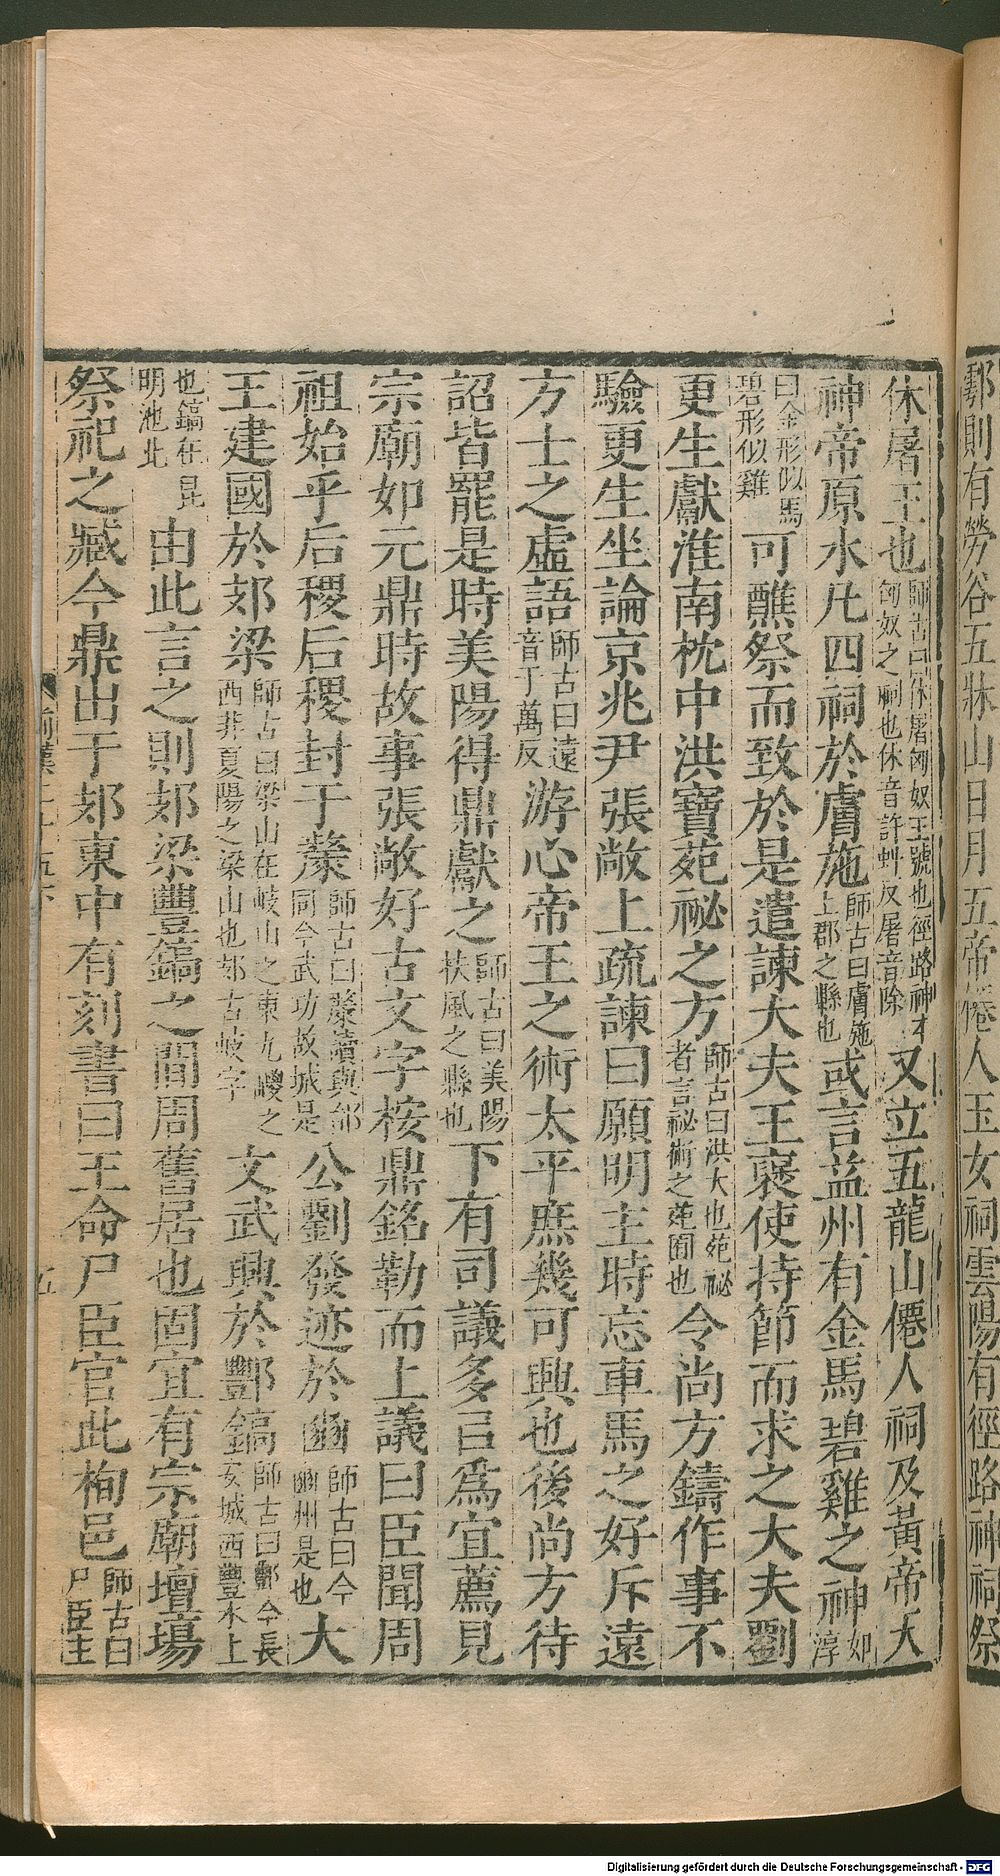 鄠則有勞谷五牀山日月五帝僊人玉女祠雲陽有徑路神祠祭
休屠王也師古曰休屠匈奴王號也徑路神本匈奴之祠也休音許虯反屠音除又立五龍山僊人祠及黃帝天
神帝原水凡四祠於膚施師古曰膚施上郡之縣也或言益州有金馬碧雞之神如淳
曰金形似馬碧形似雞可醮祭而致於是遣諫大夫王襃使持節而求之大夫劉
更生獻淮南枕中洪寶苑祕之方師古曰洪大也苑祕者言祕術之苑囿也令尚方鑄作事不
驗更生坐論京兆尹張敞上疏諫曰願明主時忘車馬之好斥遠
方士之虛語師古曰遠音于萬反游心帝王之術太平庶幾可興也後尚方待
詔皆罷是時美陽得鼎獻之師古曰美陽扶風之縣也下有司議多㠯爲宜薦見
宗廟如元鼎時故事張敞好古文字桉鼎銘勒而上議曰臣聞周
祖始乎后稷后稷封于斄師古曰斄讀與邰同今武功故城是公劉發迹於豳師古曰今豳州是也大
王建國於郊梁師古曰梁山在岐山之東九嵕之西非夏陽之梁山也郊古岐字文武興於酆鎬師古曰酆今長安城西豐水上
也鎬在昆明池北由此言之則郊梁豐鎬之間周舊居也固宜有宗廟壇場
祭祀之臧今鼎出于郊東中有刻書曰王命尸臣官此栒邑師古曰尸臣主
前漢二十五下
五
Digitalisierung gefördert durch die Deutsche Forschungsgemeinschaft - DFG